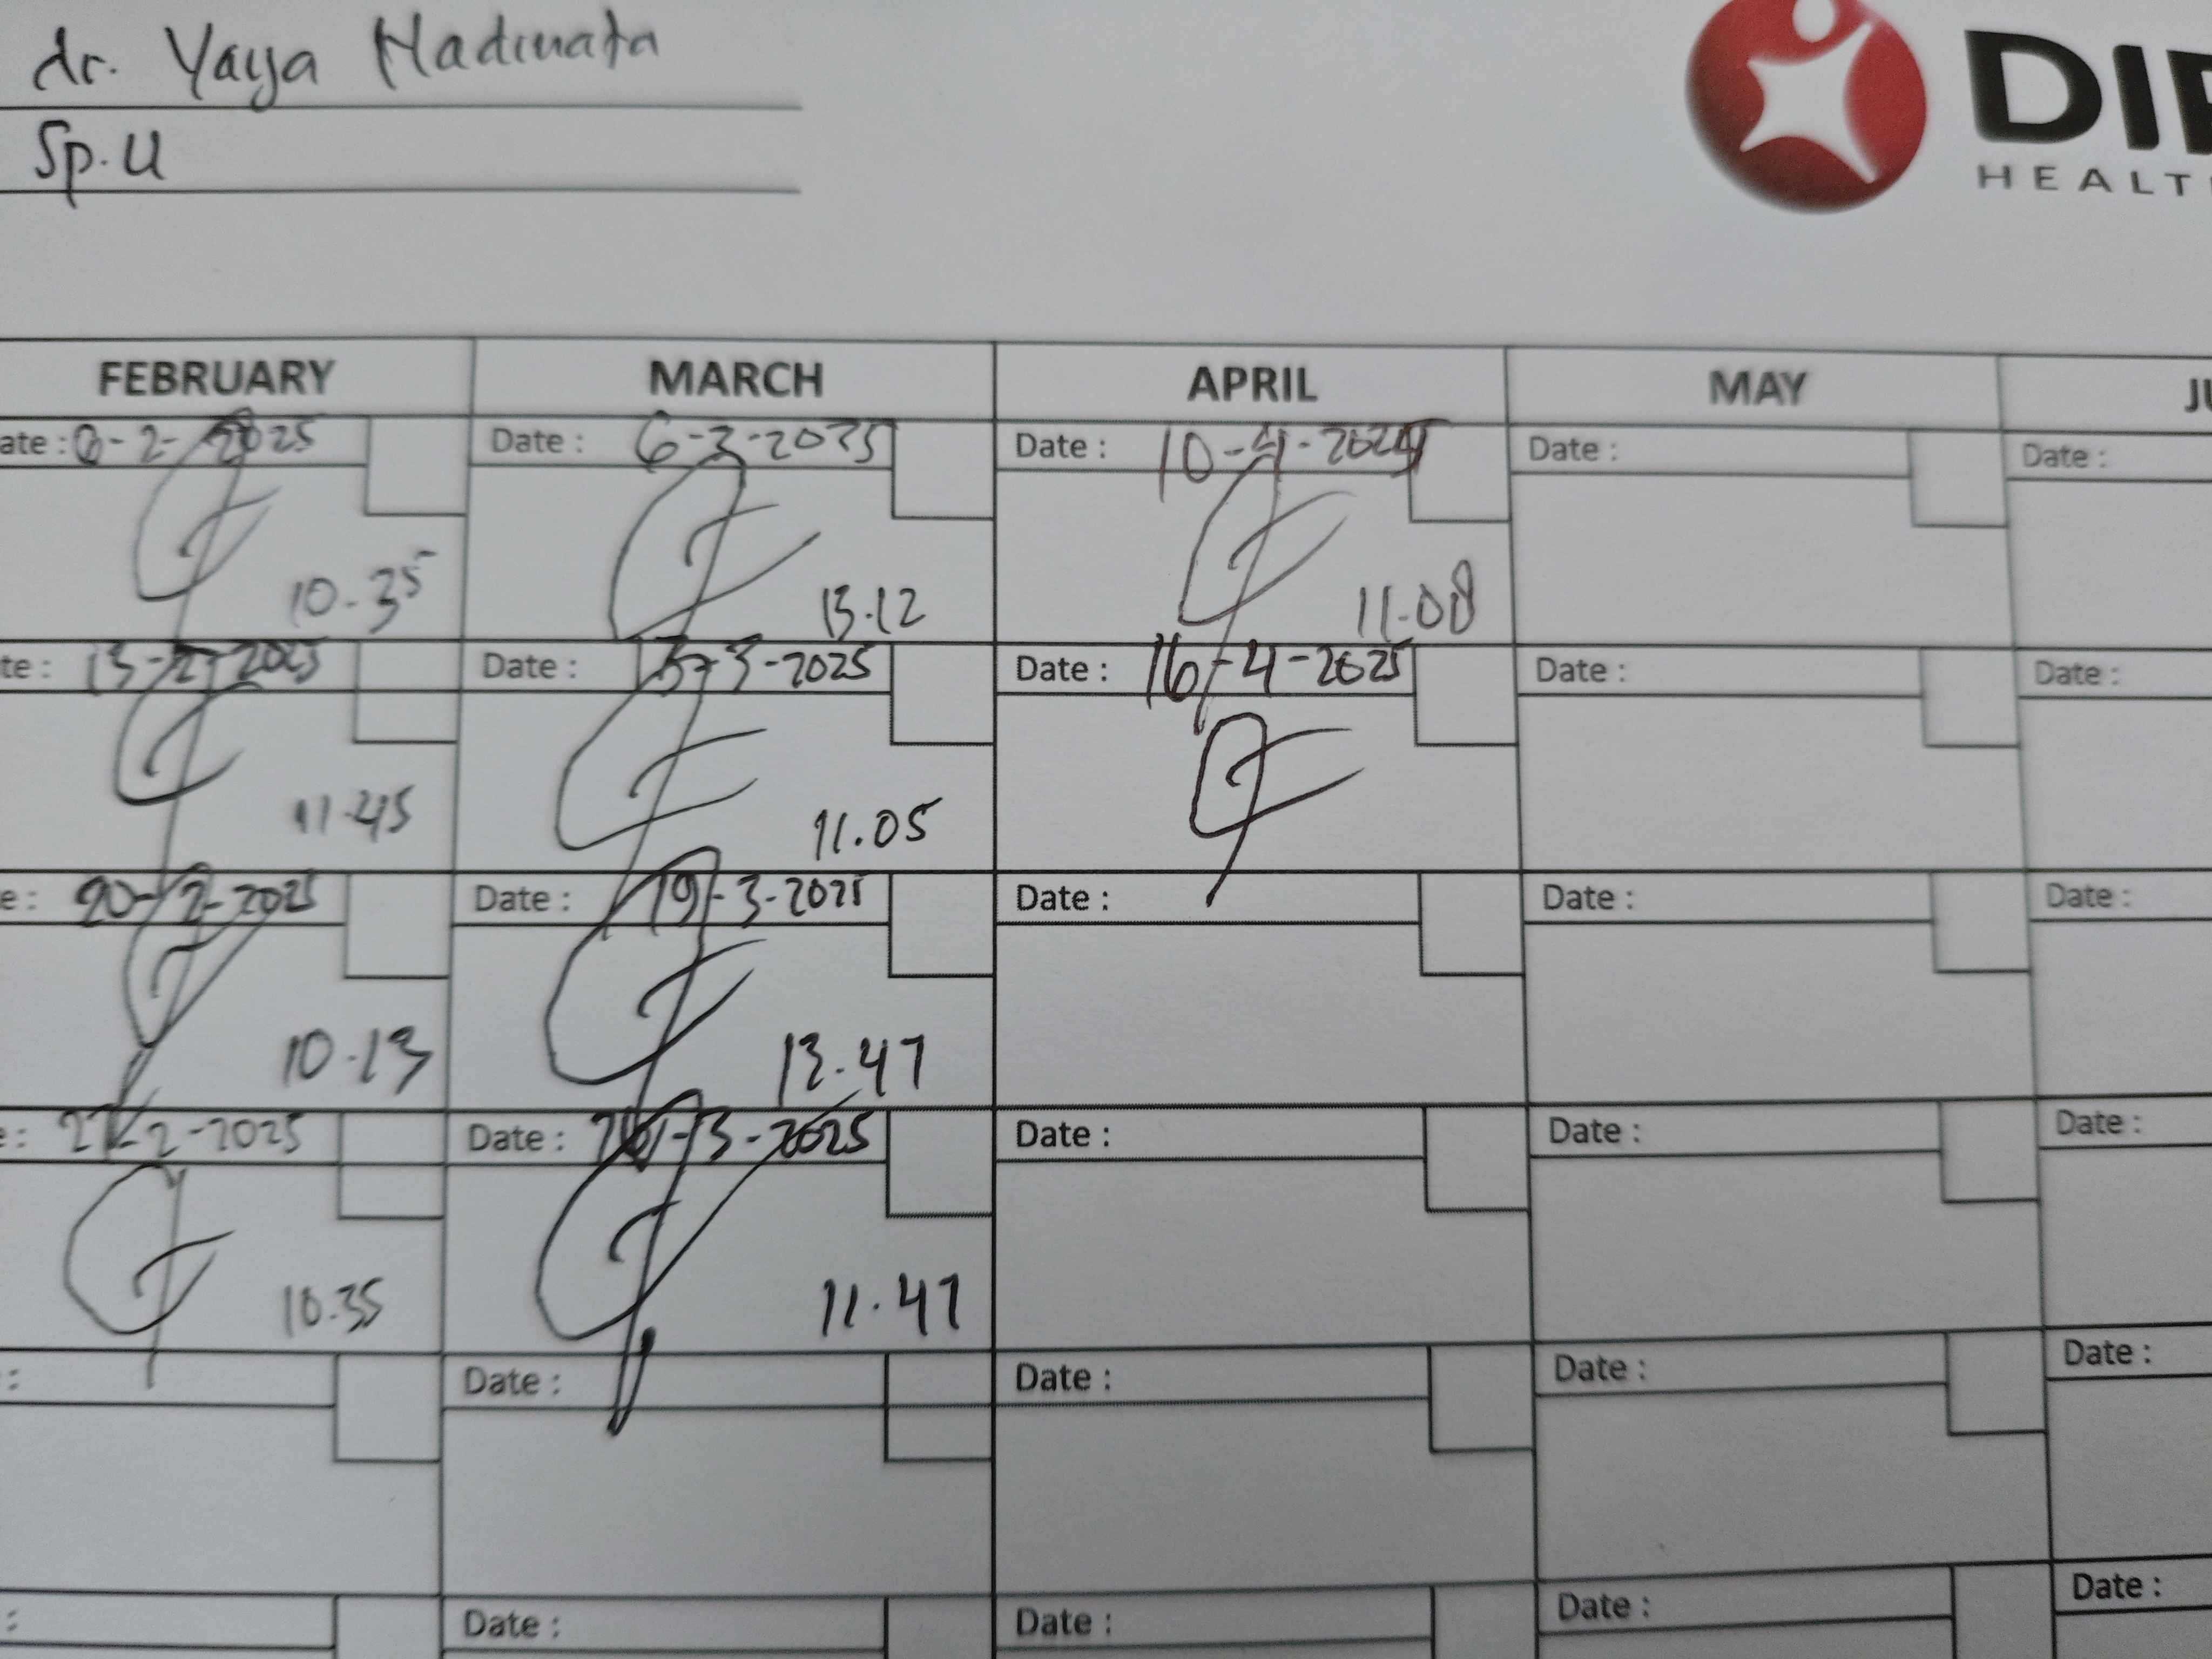 dr. Yaya Hadinata
Sp.U
DIP
HEALTH
FEBRUARY MARCH APRIL MAY JU
ate : 6-2-2025 Date : 6-3-2025 Date : 10-4-2025 Date : Date :
10-35 13.12 11-08
te : 13-2-2025 Date : 13-3-2025 Date : 16-4-2025 Date : Date :
11.45 11.05
e : 20-2-2025 Date : 19-3-2025 Date : Date : Date :
10-13 13.47
e : 27-2-2025 Date : 26-3-2025 Date : Date : Date :
10.35 11.47
: Date : Date : Date : Date :
: Date : Date : Date : Date :